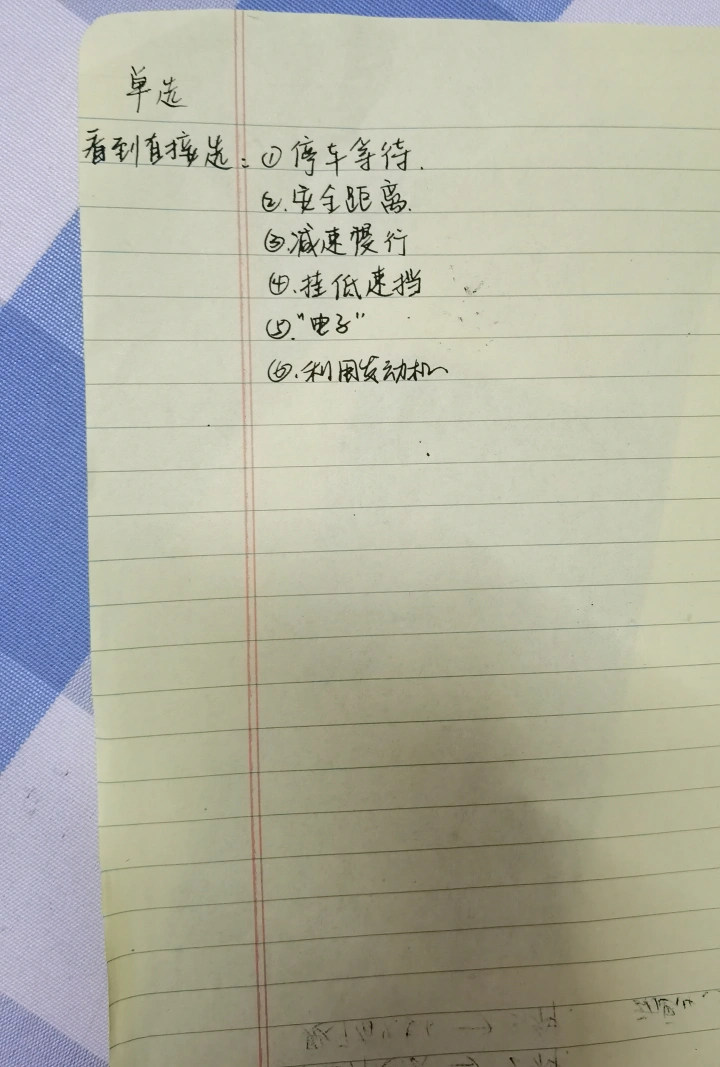 单选
看到直接选：①停车等待.
②.安全距离.
③.减速慢行
④.挂低速挡
⑤."电子"
⑥.利用发动机